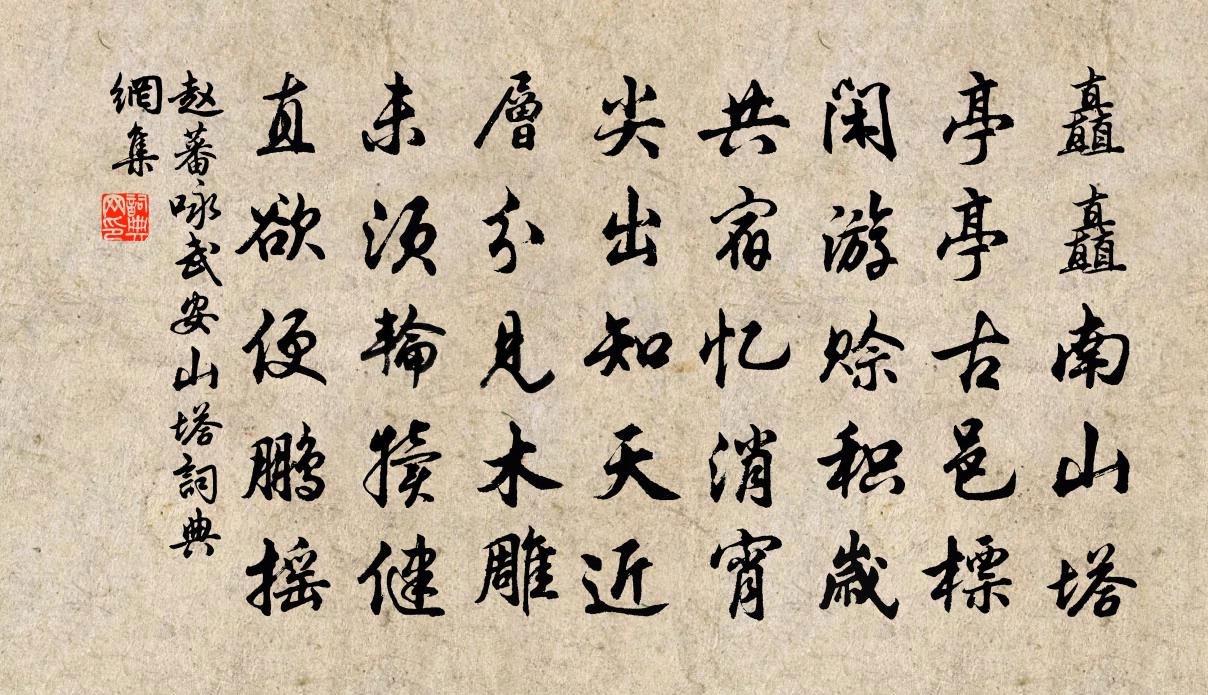 矗矗南山塔
亭亭古邑標
閑游赊积歲
共宿忆消宵
尖出知天近
層分見木雕
未須輪犢健
直欲便鵬摇
赵蕃咏武安山塔詞典
網集
詞典网印